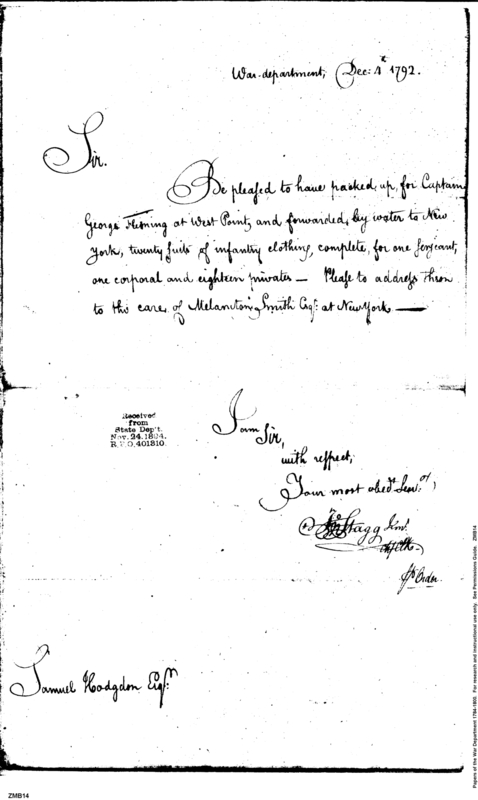 War-department, Dec: 1st 1792.
Sir.
Be pleased to have packed up, for Captain
George Fleming at West Point, and forwarded, by water to New
York, twenty suits of infantry clothing, complete, for one serjeant,
one corporal and eighteen privates — Please to address them
to the care of Melancton Smith Esqr. at New York —
Received
from
State Dep't.
Nov. 24, 1894.
R.P.O. 401810.
I am
Sir,
with respect,
Your most obedt. Servt.
Jno Stagg Junr.
Samuel Hodgdon Esqr.
Papers of the War Department 1784-1800. For research and instructional use only. See Permissions Guide. ZMB14
ZMB14